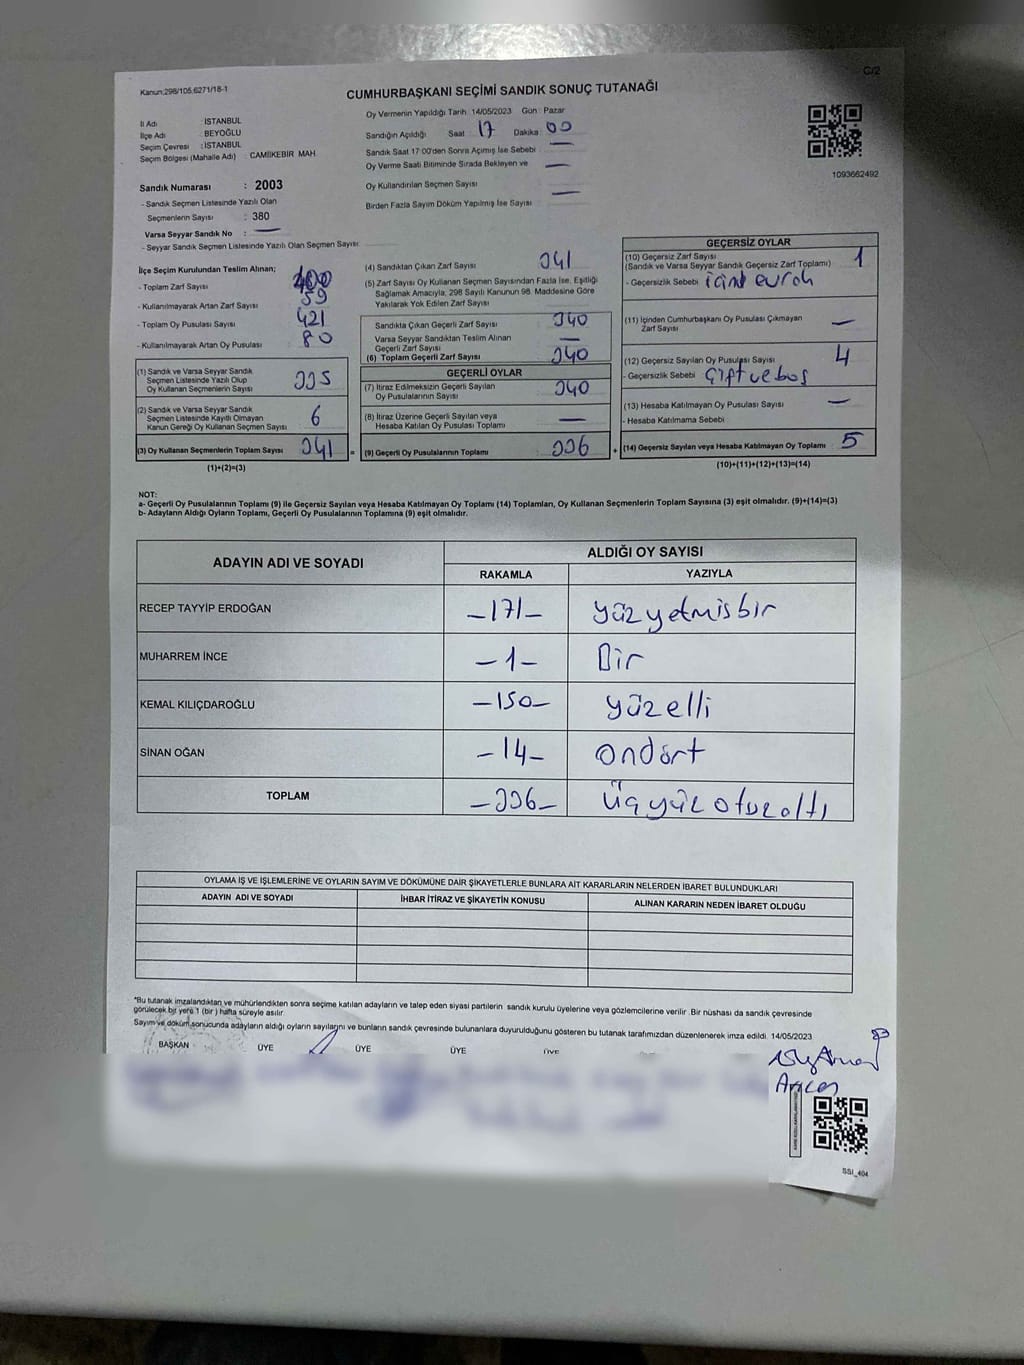 C/2
Kanun:298/105:6271/18-1
CUMHURBAŞKANI SEÇİMİ SANDIK SONUÇ TUTANAĞI
İl Adı : İSTANBUL
İlçe Adı : BEYOĞLU
Seçim Çevresi : İSTANBUL
Seçim Bölgesi (Mahalle Adı) : CAMİİKEBİR MAH.
Sandık Numarası : 2003
- Sandık Seçmen Listesinde Yazılı Olan
Seçmenlerin Sayısı : 380
Varsa Seyyar Sandık No : —
- Seyyar Sandık Seçmen Listesinde Yazılı Olan Seçmen Sayısı:
Oy Vermenin Yapıldığı Tarih : 14/05/2023 Gün : Pazar
Sandığın Açıldığı Saat : 17 Dakika : 00
Sandık Saat 17:00'den Sonra Açımış İse Sebebi : —
Oy Verme Saati Bitiminde Sırada Bekleyen ve —
Oy Kullandırılan Seçmen Sayısı
Birden Fazla Sayım Döküm Yapılmış İse Sayısı : —
1093662492
İlçe Seçim Kurulundan Teslim Alınan;
- Toplam Zarf Sayısı : 400
- Kullanılmayarak Artan Zarf Sayısı : 59
- Toplam Oy Pusulası Sayısı : 421
- Kullanılmayarak Artan Oy Pusulası : 80
(1) Sandık ve Varsa Seyyar Sandık
Seçmen Listesinde Yazılı Olup
Oy Kullanan Seçmenlerin Sayısı : 335
(2) Sandık ve Varsa Seyyar Sandık
Seçmen Listesinde Kayıtlı Olmayan
Kanun Gereği Oy Kullanan Seçmen Sayısı : 6
(3) Oy Kullanan Seçmenlerin Toplam Sayısı : 341 =
(1)+(2)=(3)
(4) Sandıktan Çıkan Zarf Sayısı : 341
(5) Zarf Sayısı Oy Kullanan Seçmen Sayısından Fazla İse, Eşitliği
Sağlamak Amacıyla, 298 Sayılı Kanunun 98. Maddesine Göre
Yakılarak Yok Edilen Zarf Sayısı :
Sandıkta Çıkan Geçerli Zarf Sayısı : 340
Varsa Seyyar Sandıktan Teslim Alınan
Geçerli Zarf Sayısı : —
(6) Toplam Geçerli Zarf Sayısı : 340
GEÇERLİ OYLAR
(7) İtiraz Edilmeksizin Geçerli Sayılan
Oy Pusulalarının Sayısı : 340
(8) İtiraz Üzerine Geçerli Sayılan veya
Hesaba Katılan Oy Pusulası Toplamı : —
(9) Geçerli Oy Pusulalarının Toplamı : 336 +
GEÇERSİZ OYLAR
(10) Geçersiz Zarf Sayısı : 1
(Sandık ve Varsa Seyyar Sandık Geçersiz Zarf Toplamı)
- Geçersizlik Sebebi :
(11) İçinden Cumhurbaşkanı Oy Pusulası Çıkmayan
Zarf Sayısı : —
(12) Geçersiz Sayılan Oy Pusulası Sayısı : 4
- Geçersizlik Sebebi : Çift ve boş
(13) Hesaba Katılmayan Oy Pusulası Sayısı : —
- Hesaba Katılmama Sebebi :
(14) Geçersiz Sayılan veya Hesaba Katılmayan Oy Toplamı : 5
(10)+(11)+(12)+(13)=(14)
NOT:
a- Geçerli Oy Pusulalarının Toplamı (9) ile Geçersiz Sayılan veya Hesaba Katılmayan Oy Toplamı (14) Toplamları, Oy Kullanan Seçmenlerin Toplam Sayısına (3) eşit olmalıdır. (9)+(14)=(3)
b- Adayların Aldığı Oyların Toplamı, Geçerli Oy Pusulalarının Toplamına (9) eşit olmalıdır.
ADAYIN ADI VE SOYADI ALDIĞI OY SAYISI
RAKAMLA YAZIYLA
RECEP TAYYİP ERDOĞAN -171- yüz yetmis bir
MUHARREM İNCE -1- Bir
KEMAL KILIÇDAROĞLU -150- yüz elli
SİNAN OĞAN -14- ondört
TOPLAM -336- Üçyüz otuz altı
OYLAMA İŞ VE İŞLEMLERİNE VE OYLARIN SAYIM VE DÖKÜMÜNE DAİR ŞİKAYETLERLE BUNLARA AİT KARARLARIN NELERDEN İBARET BULUNDUKLARI
ADAYIN ADI VE SOYADI İHBAR İTİRAZ VE ŞİKAYETİN KONUSU ALINAN KARARIN NEDEN İBARET OLDUĞU
*Bu tutanak imzalandıktan ve mühürlendikten sonra seçime katılan adayların ve talep eden siyasi partilerin sandık kurulu üyelerine veya gözlemcilerine verilir. Bir nüshası da sandık çevresinde
görülecek bir yere 1 (bir) hafta süreyle asılır.
Sayım ve döküm sonucunda adayların aldığı oyların sayılarını ve bunların sandık çevresinde bulunanlara duyurulduğunu gösteren bu tutanak tarafımızdan düzenlenerek imza edildi. 14/05/2023
BAŞKAN ÜYE ÜYE ÜYE ÜYE
SSI_404